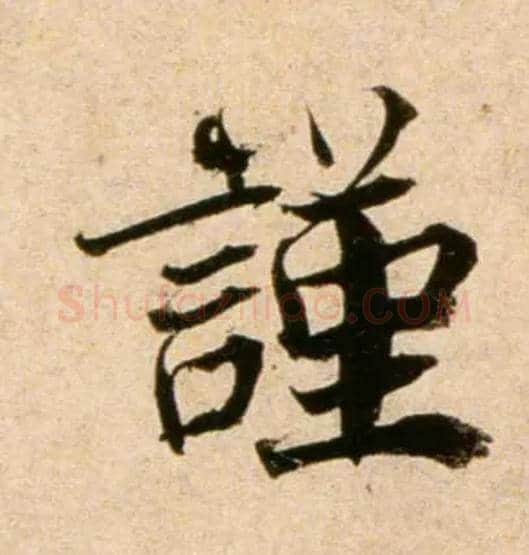 謹
Shufaziliao.COM